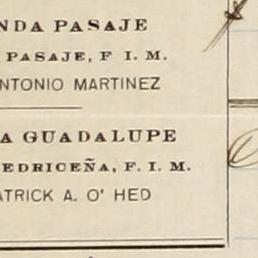 NDA PASAJE
PASAJE, F I. M.
NTONIO MARTINEZ
A GUADALUPE
EDRICEÑA, F. I. M.
ATRICK A. O' HED